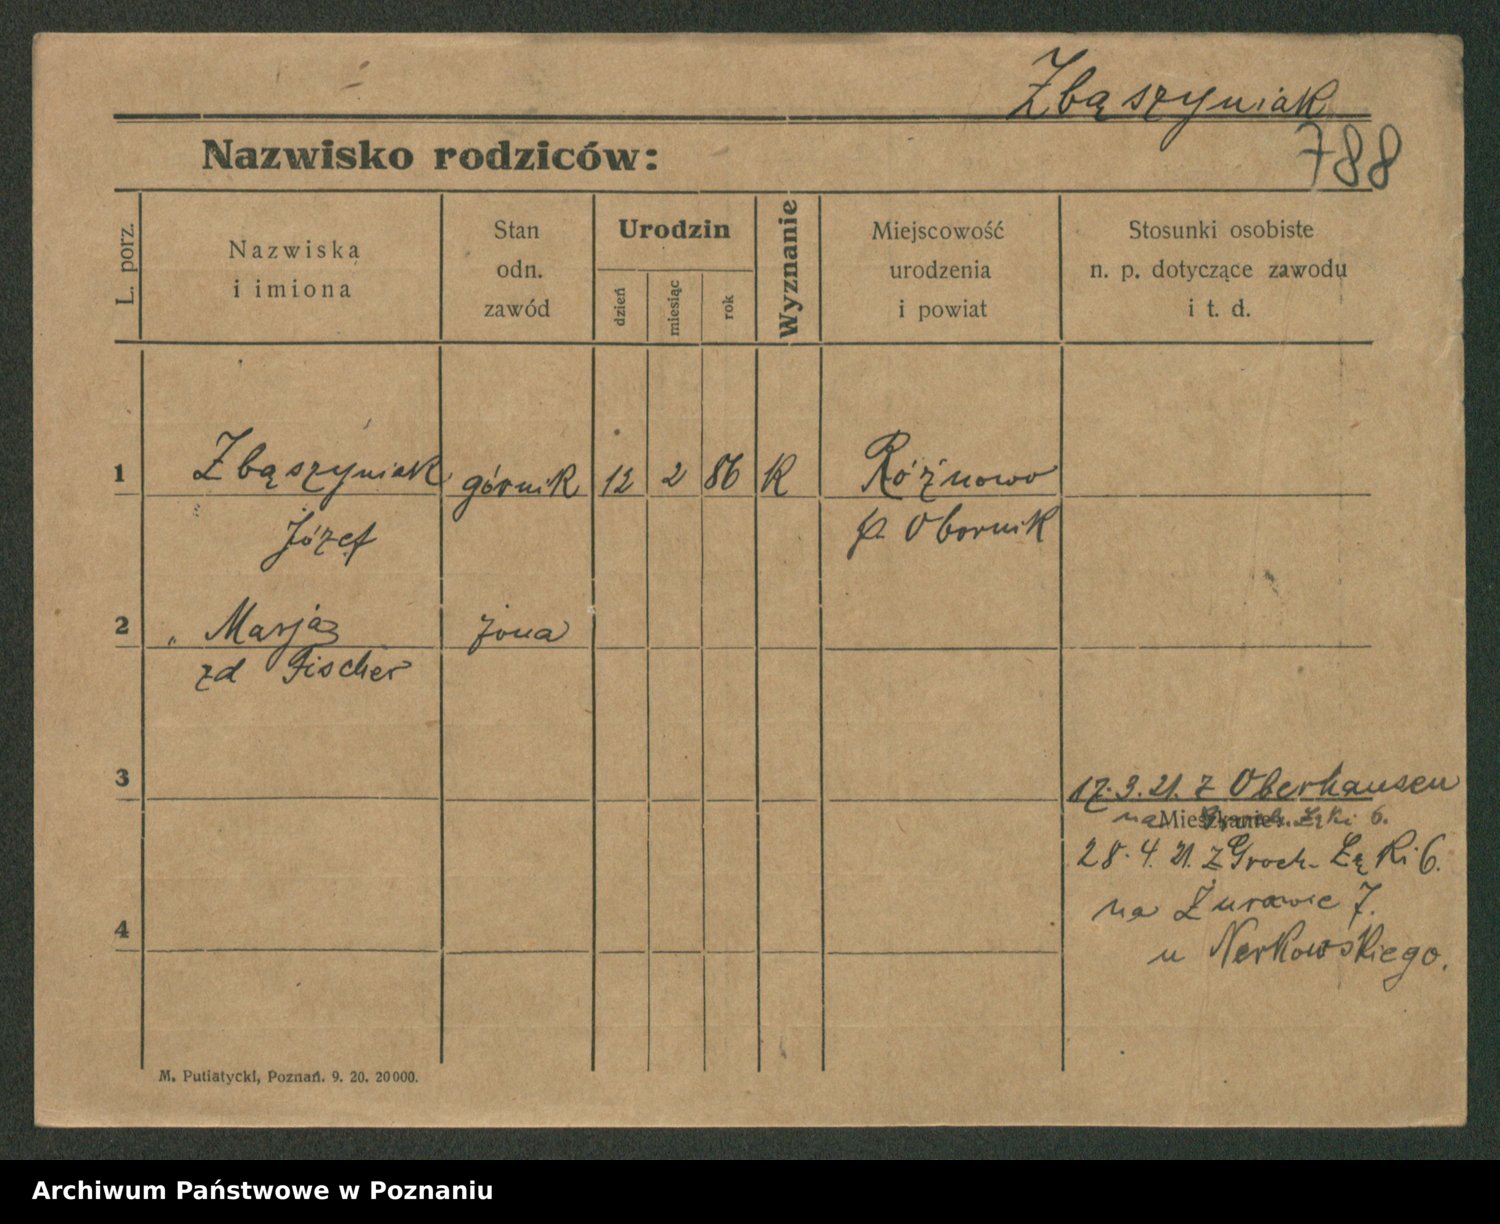 Zbąszyniak
Nazwisko rodziców:
788
L. porz.
Nazwiska
i imiona
Stan
odn.
zawód
Urodzin
dzień
miesiąc
rok
Wyznanie
Miejscowość
urodzenia
i powiat
Stosunki osobiste
n. p. dotyczące zawodu
i t. d.
1 Zbąszyniak górnik 12 2 86 k Różnowo
Józef p. Obornik
2 " Marja żona
zd Fischer
3
17.3.21. z Oberhausen
Mieszkanie:
na Groch. Łąki 6.
28.4.21. z Groch. Łąki 6.
na Żurawie 7.
4
u Nerkowskiego.
M. Putiatycki, Poznań. 9. 20. 20000.
Archiwum Państwowe w Poznaniu